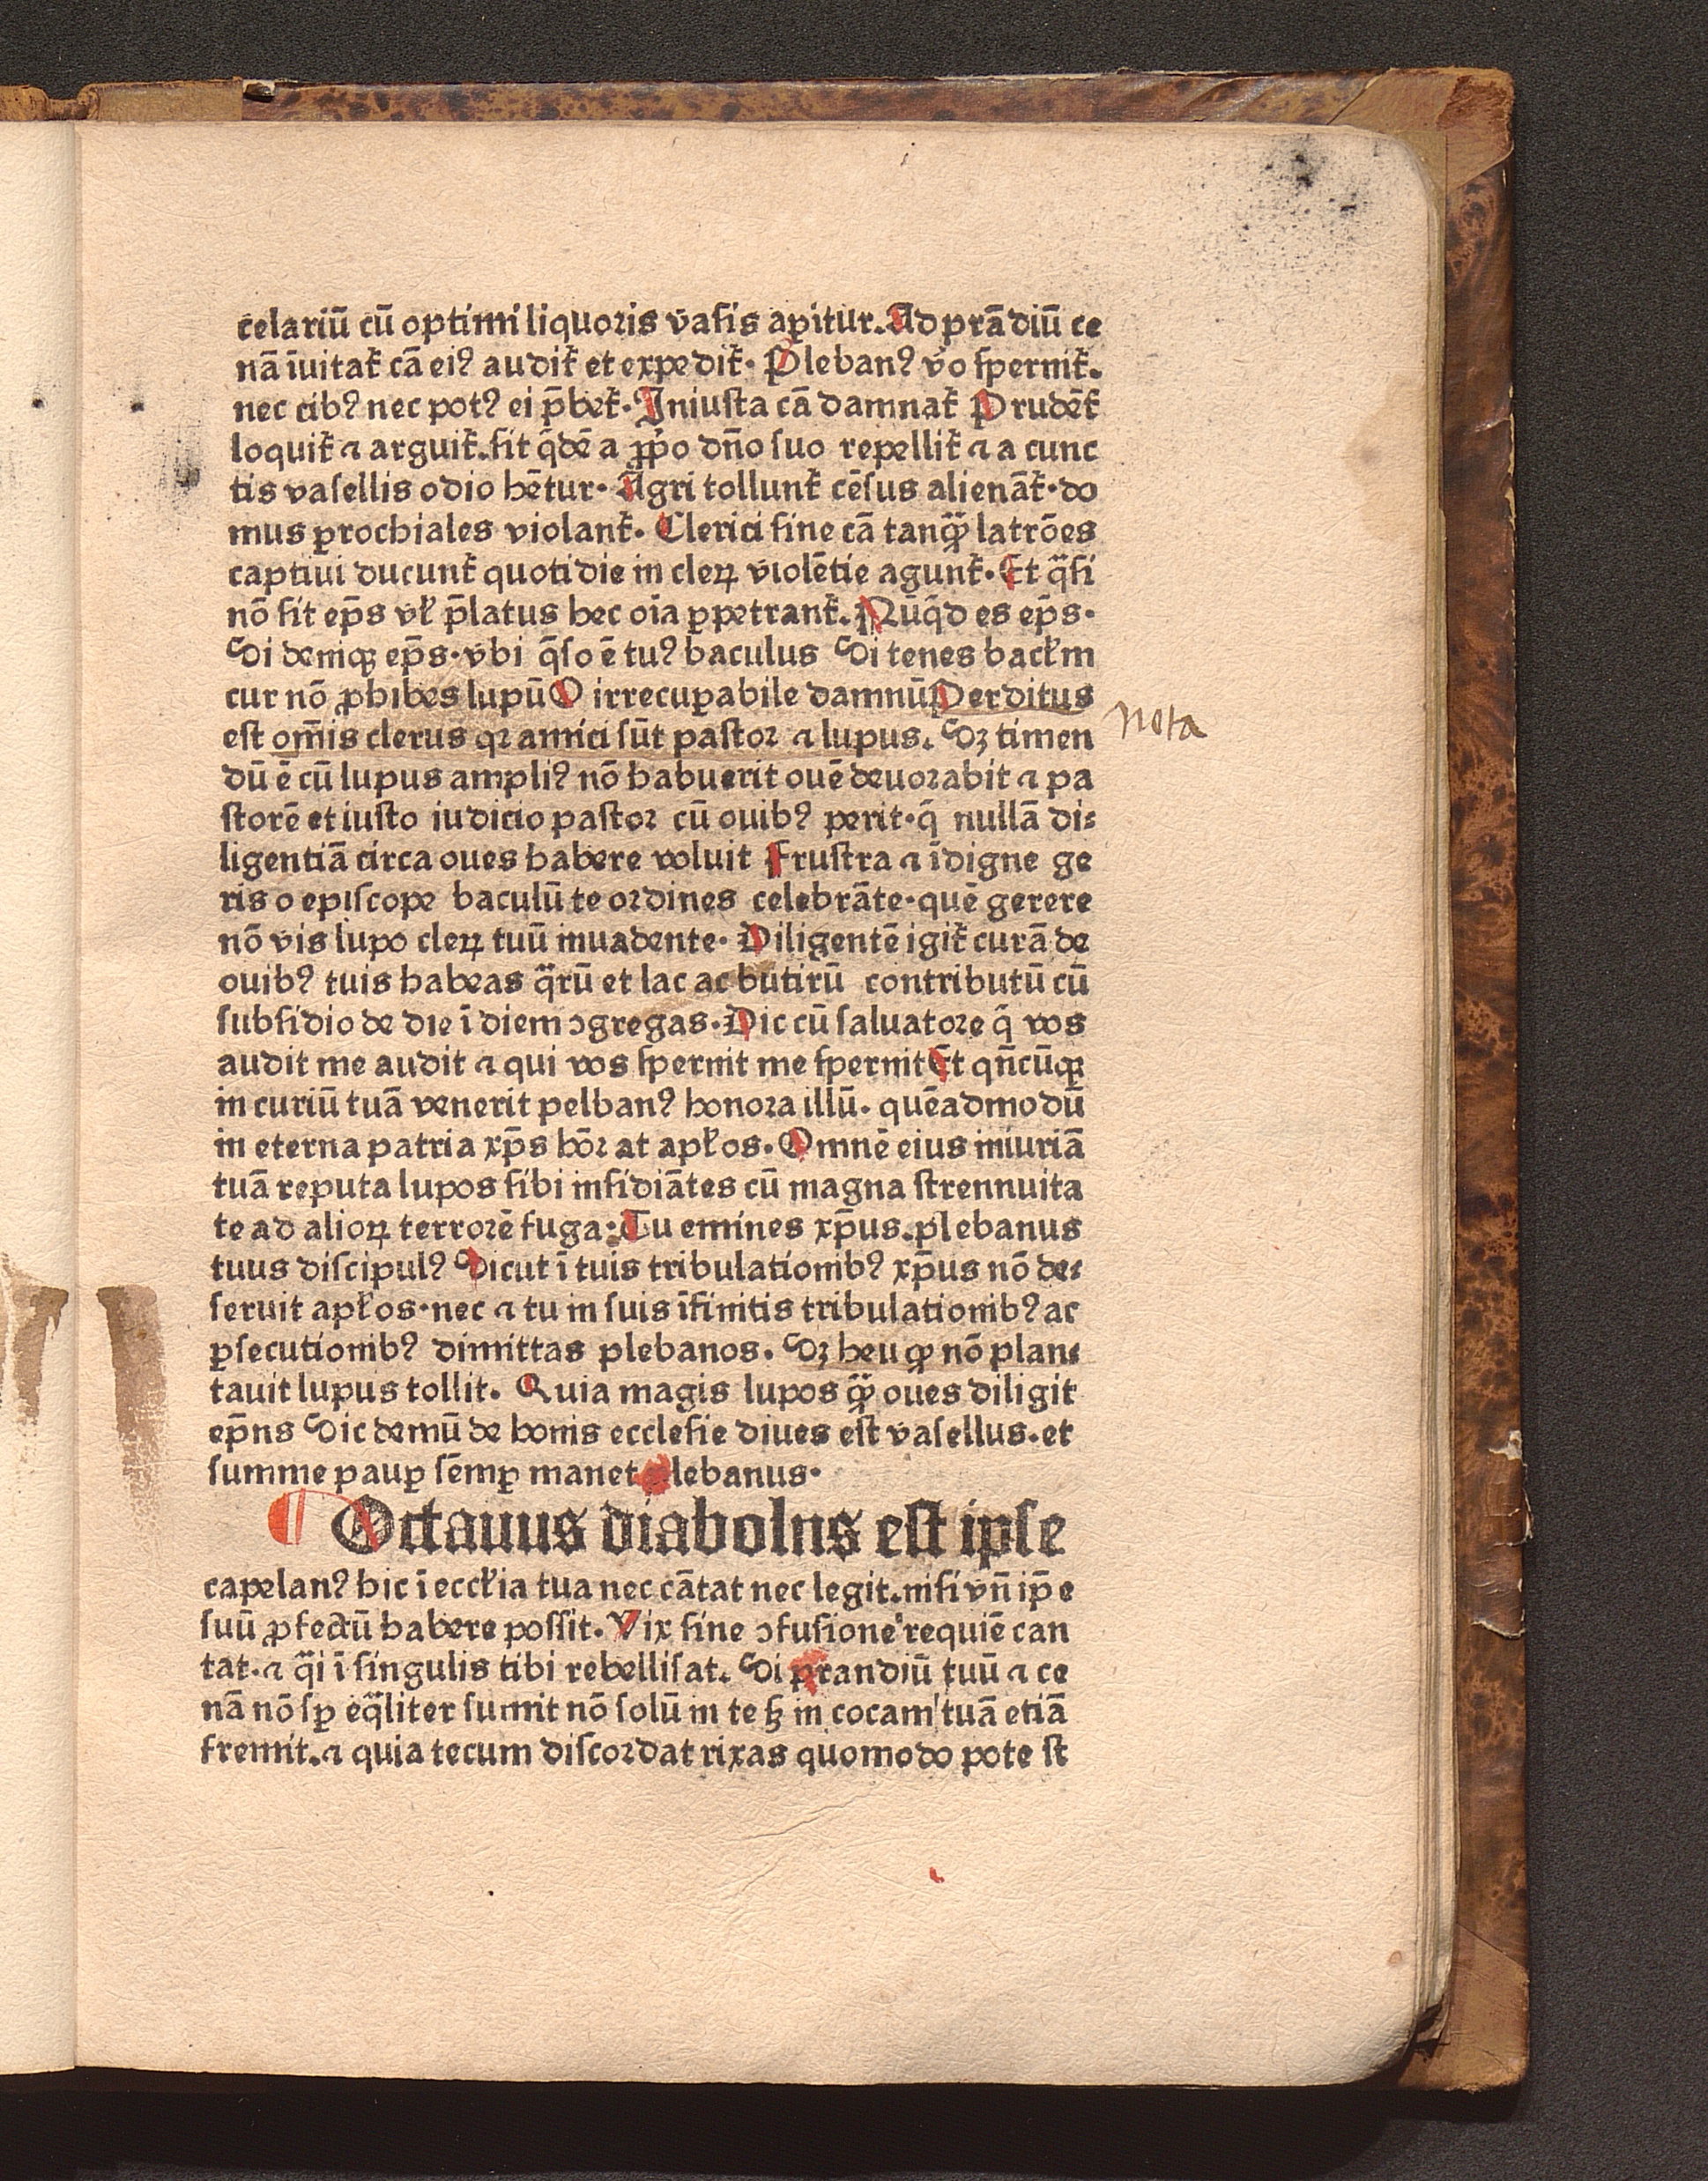 celariū cū optimi liquoꝛis v̄aſis aꝑitur. Ad prādiū ce
nā īuitat᷑ cā eiꝰ audit᷑ et expedit᷑. Plebanꝰ v̄o ſpernit᷑.
nec cibꝰ nec potꝰ ei p̄bet᷑. Iniuſta cā damnat᷑ Prudēt᷑
loquit᷑ ⁊ arguit᷑. ſit q̄dē a ꝓp̄o dn̄o ſuo repellit᷑ ⁊ a cunc
tis vaſellis odio hētur. Agri tollunt᷑ cēſus alienāt᷑. do
mus ꝑrochiales violant᷑. Clerici ſine cā tanꝙ̄ latrōes
captiui ducunt᷑ quotidie in cleꝝ violētie agunt᷑. Et q̄ſi
nō ſit ep̄s vł p̄latus hec oīa ꝑpetrant᷑. Nūq̄d es ep̄s.
Si deniqꝫ ep̄s. vbi q̄ſo ē tuꝰ baculus Si tenes bacłm
cur nō ꝓhibes lupū O irrecuꝑabile damnū Perditus
eſt om̄is clerus qꝛ amici ſūt paſtoꝛ ⁊ lupus. Sꝫ timen
dū ē cū lupus ampliꝰ nō habuerit ouē deuoꝛabit ⁊ pa
ſtorē et iuſto iudicio paſtoꝛ cū ouibꝰ perit. q̄ nullā di⸗
ligentiā circa oues habere voluit Fruſtra ⁊ īdigne ge
ris o epiſcope baculū te oꝛdines celebrāte. quē gerere
nō vis lupo cleꝝ tuū inuadente. Diligentē igit᷑ curā de
ouibꝰ tuis habeas q̄rū et lac ac butirū contributū cū
ſubſidio de die ī diem ꝯgregas. Dic cū ſaluatoꝛe q̄ vos
audit me audit ⁊ qui vos ſpernit me ſpernit Et qn̄cūqꝫ
in curiū tuā venerit pelbanꝰ honoꝛa illū. quēadmodū
in eterna patria xp̄s hōꝛat apłos. Omnē eius iniuriā
tuā reputa lupos ſibi inſidiātes cū magna ſtrennuita
te ad alioꝝ terroꝛē fuga: Tu emines xp̄us. plebanus
tuus diſcipulꝰ Sicut ī tuis tribulationibꝰ xp̄us nō de⸗
ſeruit apłos. nec ⁊ tu in ſuis īfinitis tribulationibꝰ ac
ꝑſecutionibꝰ dimittas plebanos. Sꝫ heu ꝙ nō plan⸗
tauit lupus tollit. Quia magis lupos ꝙ̄ oues diligit
ep̄ns Sic demū de bonis eccleſie diues eſt vaſellus. et
ſumme pauꝑ ſēmꝑ manet plebanus.
Octauus diabolus eſt ipſe
capelanꝰ hic ī eccłia tua nec cātat nec legit. niſi vn̄ ip̄e
ſuū ꝓfectū habere poſſit. Vix ſine ꝯfuſione requiē can
tat. ⁊ q̄i ī ſingulis tibi rebelliſat. Si prandiū tuū ⁊ ce
nā nō ſꝑ eq̄liter ſumit nō ſolū in te ſꝫ in cocam tuā etiā
fremit. ⁊ quia tecum diſcoꝛdat rixas quomodo pote ſt
nota